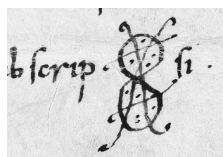 bscrip si.